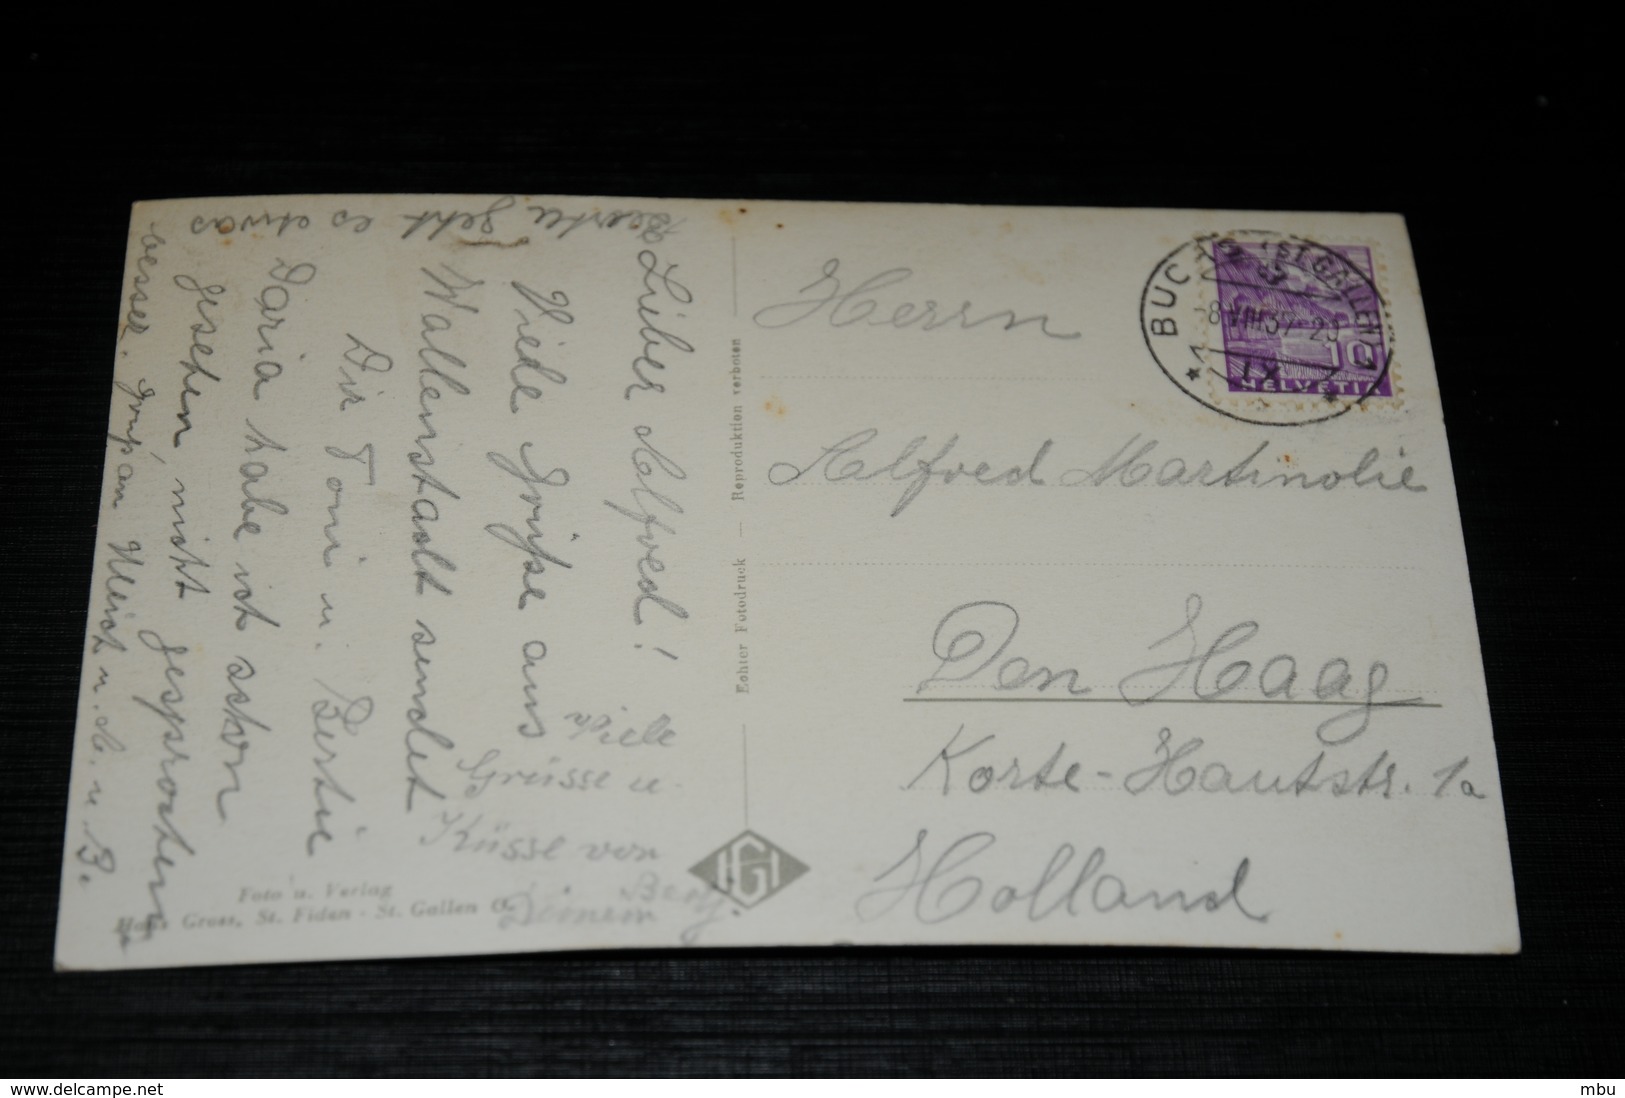 Lieber Alfred!
Viele Grüsse aus
Wallenstadt sendet
Dir Toni u. Bertie
Daria habe ich schon
gesehen, nicht gesprochen
geht es etwas
besser.
Viele
Grüsse u.
Küsse von
Deinem
Echter Fotodruck — Reproduktion verboten
HGH
Foto u. Verlag
Hans Gross, St. Fiden - St. Gallen
Herrn
Alfred Martinolie
Den Haag
Korte-Houtstr. 1a
Holland
BUCHS (ST. GALLEN)
8 VIII 37
10
HELVETIA
www.delcampe.net
mbu